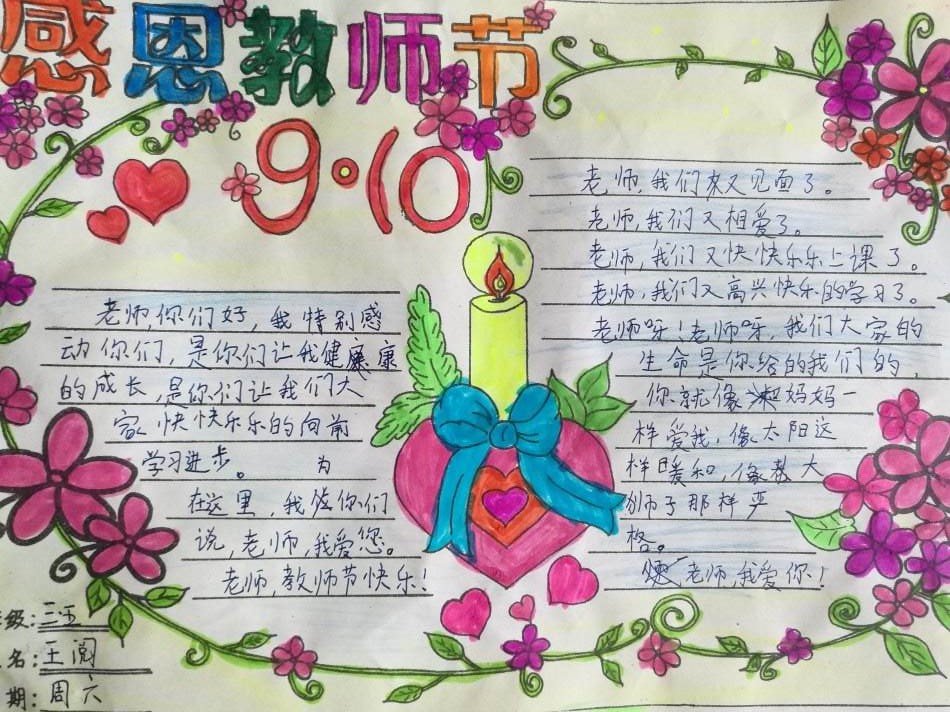 感恩教师节
9·10
老师,你们好,我特别感
动你们,是你们让我健康康
的成长,是你们让我们大
家快快乐乐的向前
学习进步。 为
在这里,我 你们
说,老师,我爱您。
老师,教师节快乐!
老师,我们来又见面了。
老师,我们又相爱了。
老师,我们又快快乐乐上课了。
老师,我们又高兴快乐的学习了。
老师呀!老师呀,我们大家的
生命是你给的我们的,
你就像 妈妈一
样爱我,像太阳这
样暖和,像 大
师子那样严
格。
老师,我爱你!
级:三.五
名:王阅
期:周六